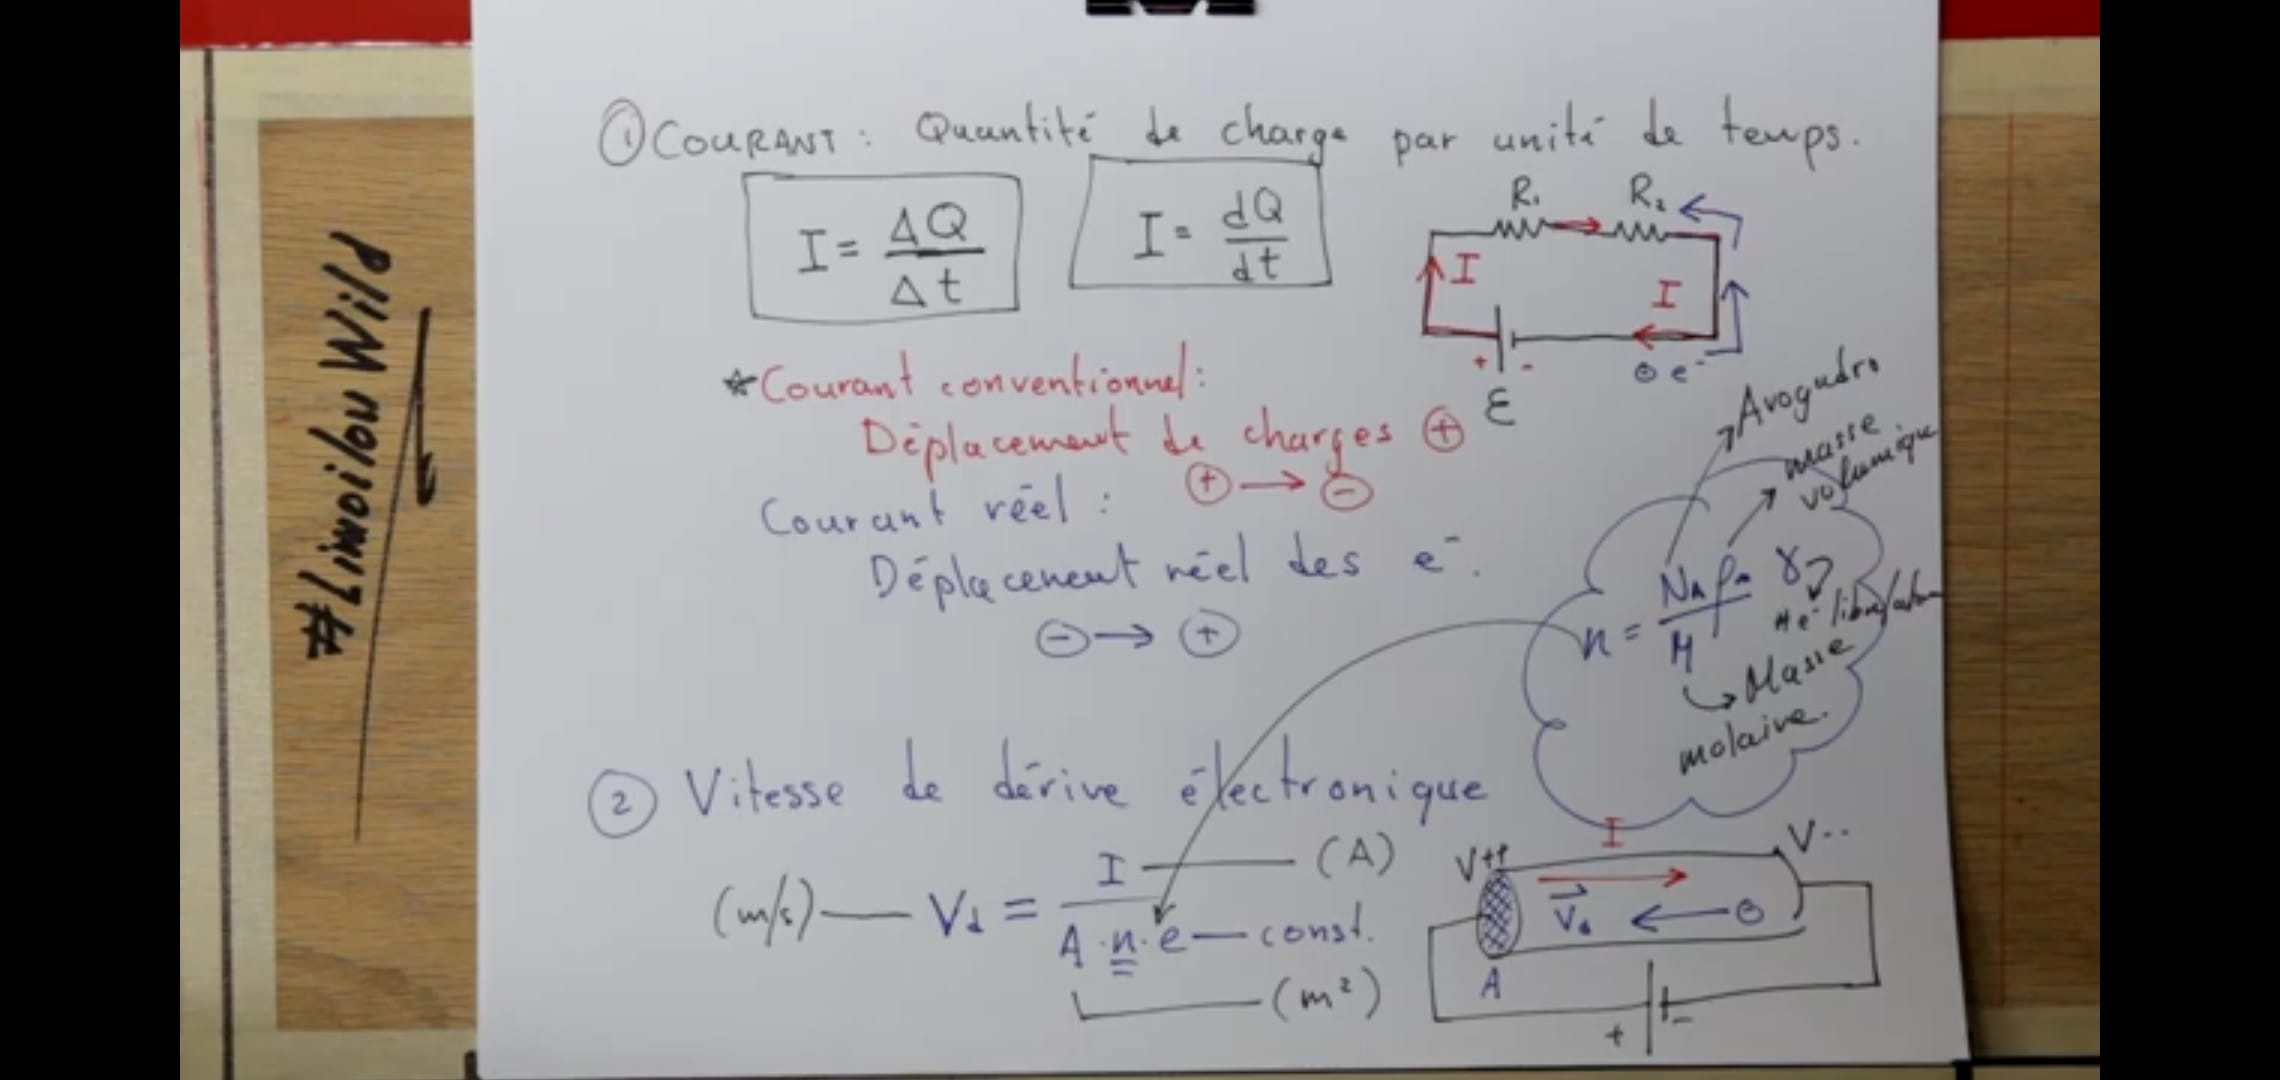 #Limoilou Wild
① COURANT : Quantité de charge par unité de temps.
I = ΔQ / Δt
I = dQ / dt
R₁ R₂
I I
+ -
⊖ e⁻
ε
* Courant conventionnel :
Déplacement de charges ⊕
⊕ → ⊖
Courant réel :
Déplacement réel des e⁻.
⊖ → ⊕
Avogadro
masse
volumique
n = NA ρm γ / M
# e⁻ libre/atom
Masse
molaire.
② Vitesse de dérive électronique
(m/s) — Vd = I / A · n · e
(A)
const.
(m²)
I
V++ V--
Vd ← ⊖
A
+ -